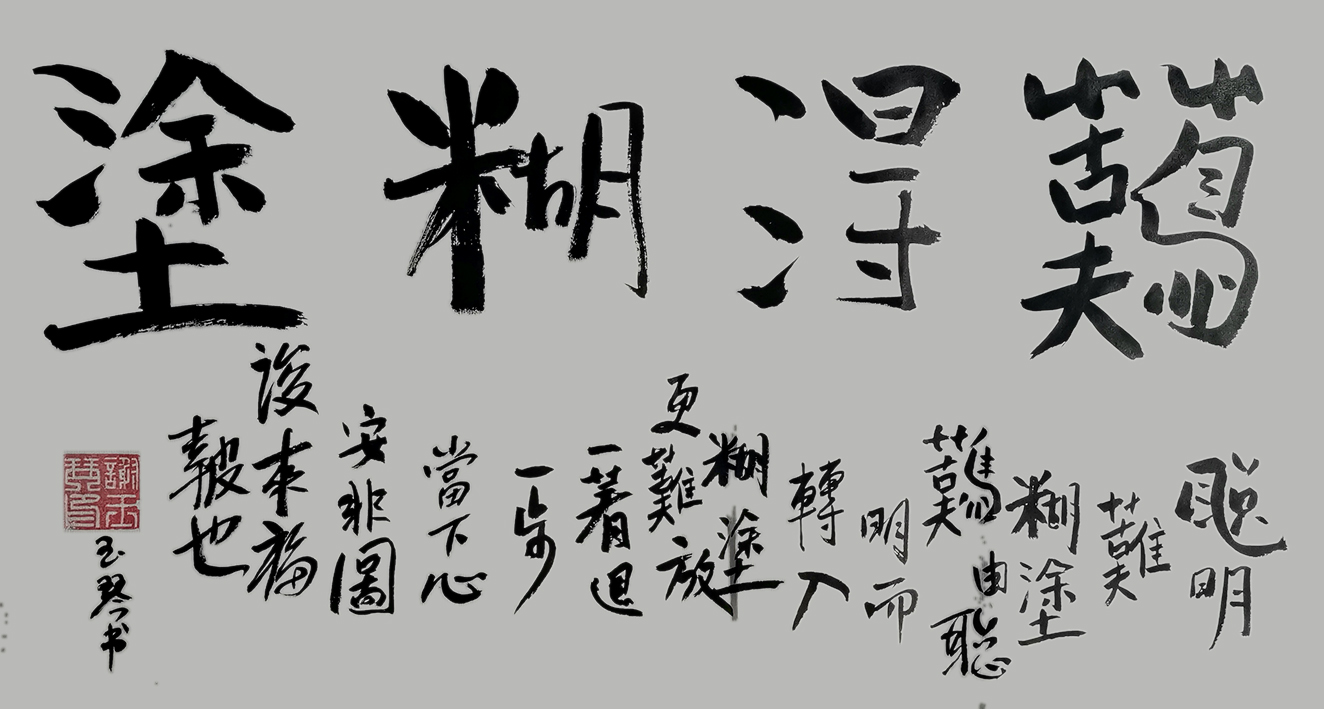 難得糊塗
聰明
難
糊塗
難由聰
明而
轉入
糊塗
更難放
一著退
一步
當下心
安非圖
後來福
報也
玉琴书
謝玉
琴印